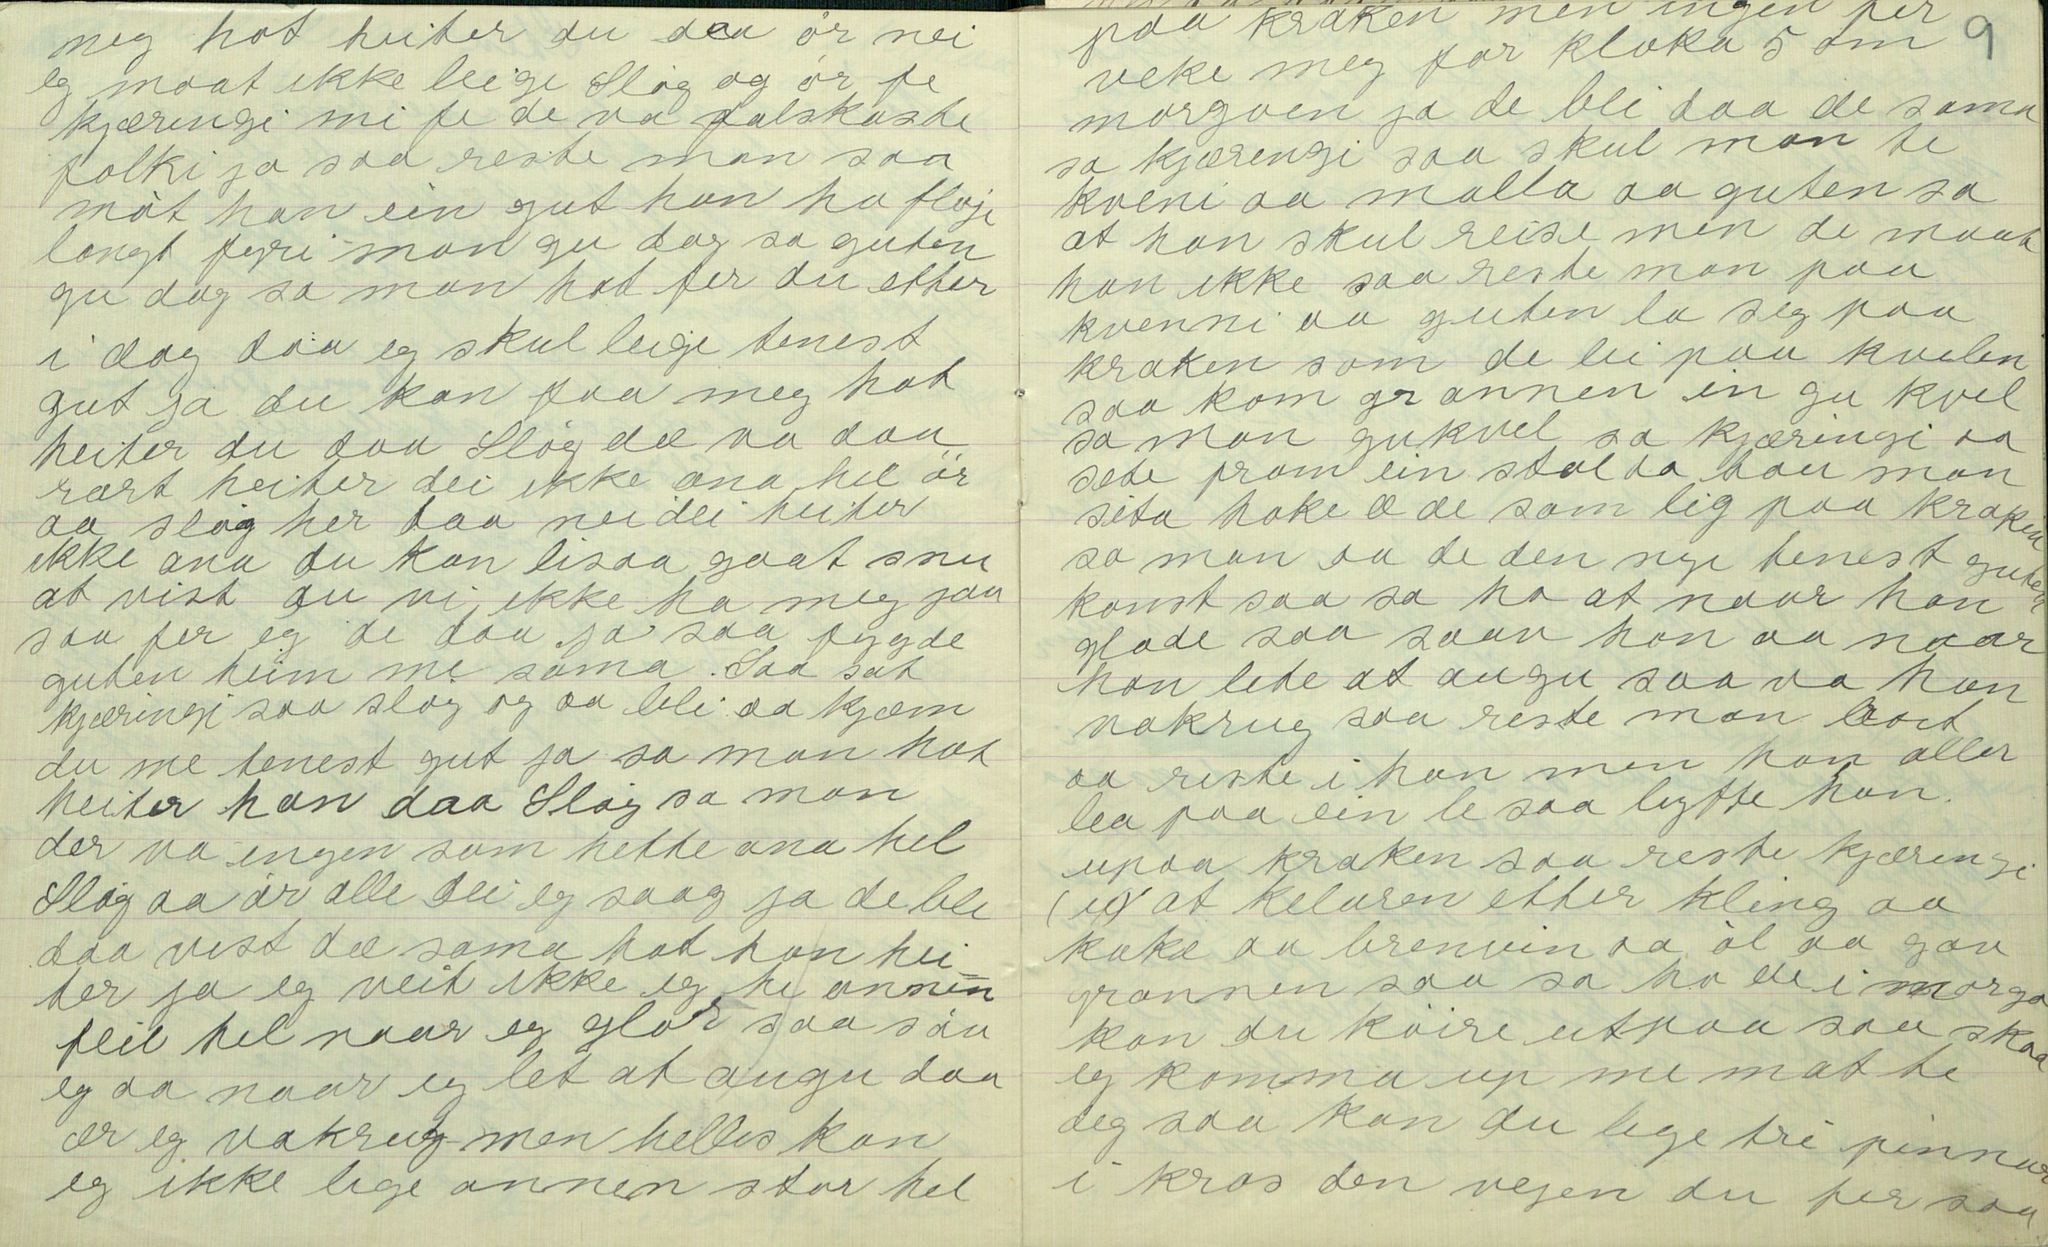 meg hot heiter du daa ór nei
eg maat ikke leige Slóg og ór fe
kjæringi mi fe de va falskaste
folki ja saa reste man saa
mót han ein gut han ha fløje
langt fyri man gu dag sa guten
gu dag sa man hot fer du etter
i dag daa eg skul leige tenest
gut ja du kan faa meg hot
heiter du daa Slóg dæ va daa
rart heiter dei ikke ana hel ór
aa slóg her daa nei dei heiter
ikke ana du kan lisaa gaat snu
at vist du vi ikke ha meg jaa
saa fer eg de daa ja saa fygde
guten heim me sama. Saa sat
kjæringi saa slog og aa bli aa kjæm
du me tenest gut ja sa man hot
heiter han daa Slóg sa man
der va ingen som hette ana hel
Slóg aa ór alle dei eg saag ja de ble
daa vist dæ sama hot han hei=
ter ja eg veit ikke eg he annen
feil hel naar eg glor saa sóv
eg aa naar eg let at augu daa
ær eg vakrug men helles kan
eg ikke lege annen stor hel
paa kraken men ingen fer 9
veke meg før kloka 5 om
morgoen ja de bli daa de sama
sa kjærengi saa skul man te
kveni aa malla aa guten sa
at han skul reise men de maat
han ikke saa reste man paa
kvenni aa guten la seg paa
kraken som de lei paa kvelen
saa kom grannen in gu kvel
sa man gukvel sa kjæringi aa
sete fram ein stol aa bau man
sita hoke æ de som lig paa kraken
sa man aa de den nye tenest guten
konst saa sa ho at naar han
glode saa saav han aa naar
han lete at augu saa va han
vakrug saa reste man bort
aa reste i han men han aller
lea paa ein le saa lyfte han
upaa kraken saa reste kjærengi
(ut) at keluren etter kling aa
kake aa brenvin aa ól aa gav
grannen saa sa ho de i morgo
kan du kóire utpaa saa skaa
eg komma up me mat te
deg saa kan du lege tri pinnar
i kros den vejen du fer saa